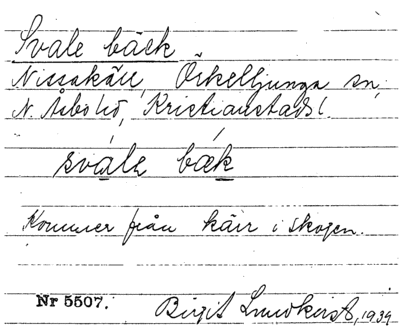 Svale bäck
Nissakärr, Örkelljunga sn,
N. Åsbo hd, Kristianstads l.
svale bæk
Kommer från kärr i skogen.
Nr 5507. Birgit Lundkvist, 1939